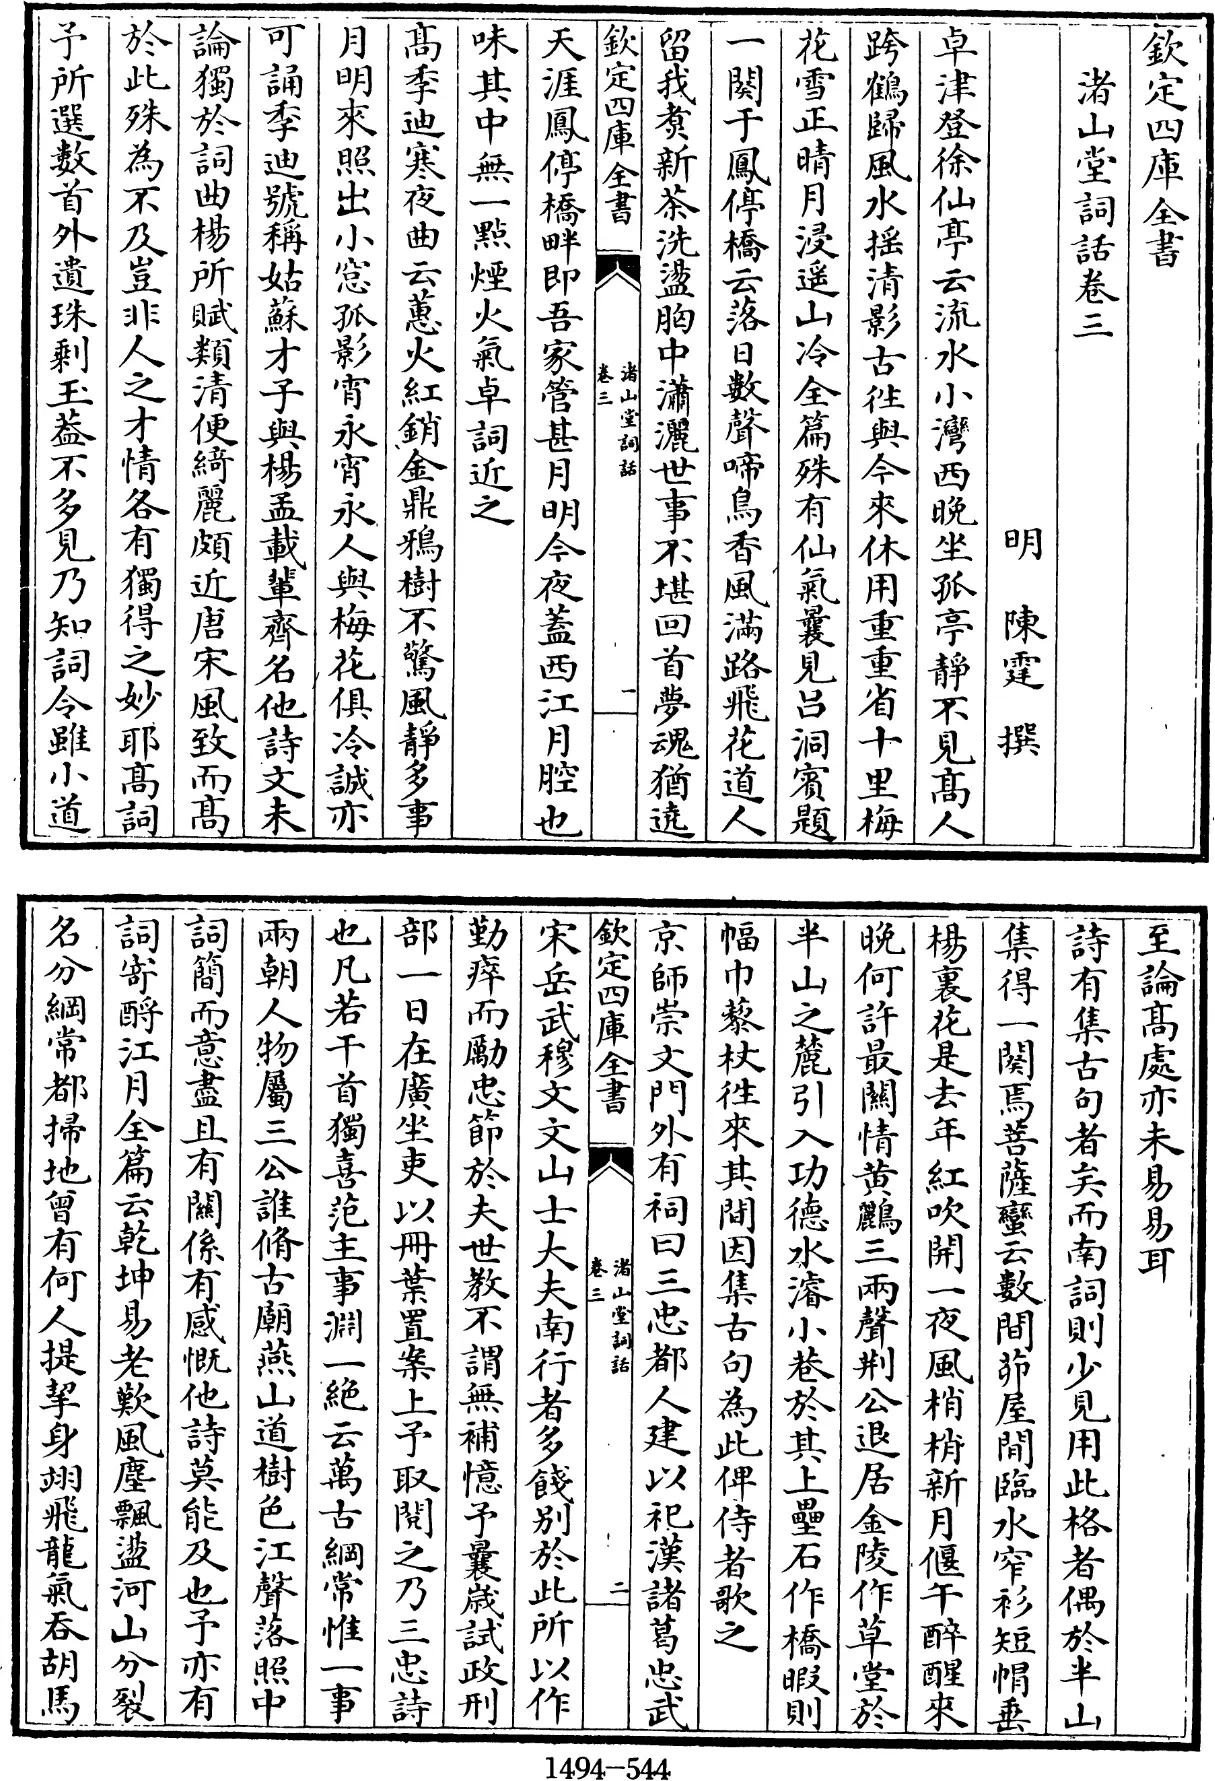 欽定四庫全書
渚山堂詞話卷三
明 陳霆 撰
卓津登徐仙亭云流水小灣西晚坐孤亭靜不見髙人
跨鶴歸風水揺清影古徃與今來休用重重省十里梅
花雪正晴月浸遥山冷全篇殊有仙氣曩見吕洞賓題
一闋于鳳停橋云落日數聲啼鳥香風滿路飛花道人
留我煑新茶洗盪胸中瀟灑世事不堪回首夢魂猶遶
欽定四庫全書
渚山堂詞話
卷三
一
天涯鳳停橋畔即吾家管甚月明今夜蓋西江月腔也
味其中無一點煙火氣卓詞近之
髙季迪寒夜曲云蕙火紅銷金鼎鴉樹不驚風靜多事
月明來照出小窓孤影宵永宵永人與梅花俱冷誠亦
可誦季迪號稱姑蘇才子與楊孟載輩齊名他詩文未
論獨於詞曲楊所賦類清便綺麗頗近唐宋風致而髙
於此殊為不及豈非人之才情各有獨得之妙耶髙詞
予所選數首外遺珠剩玉葢不多見乃知詞令雖小道
至論髙處亦未易易耳
詩有集古句者矣而南詞則少見用此格者偶於半山
集得一闋焉菩薩蠻云數間茆屋閒臨水窄衫短帽垂
楊裏花是去年紅吹開一夜風梢梢新月偃午醉醒來
晚何許最關情黄鸝三兩聲荆公退居金陵作草堂於
半山之麓引入功德水濬小巷於其上壘石作橋暇則
幅巾藜杖徃來其間因集古句為此俾侍者歌之
京師崇文門外有祠曰三忠都人建以祀漢諸葛忠武
欽定四庫全書
渚山堂詞話
卷三
二
宋岳武穆文文山士大夫南行者多餞别於此所以作
勤瘁而勵忠節於夫世教不謂無補憶予曩歲試政刑
部一日在廣坐吏以冊葉置案上予取閲之乃三忠詩
也凡若干首獨喜范主事淵一絶云萬古綱常惟一事
兩朝人物屬三公誰脩古廟燕山道樹色江聲落照中
詞簡而意盡且有關係有感慨他詩莫能及也予亦有
詞寄酹江月全篇云乾坤易老歎風塵飄盪河山分裂
名分綱常都掃地曾有何人提挈身翊飛龍氣吞胡馬
1494-544